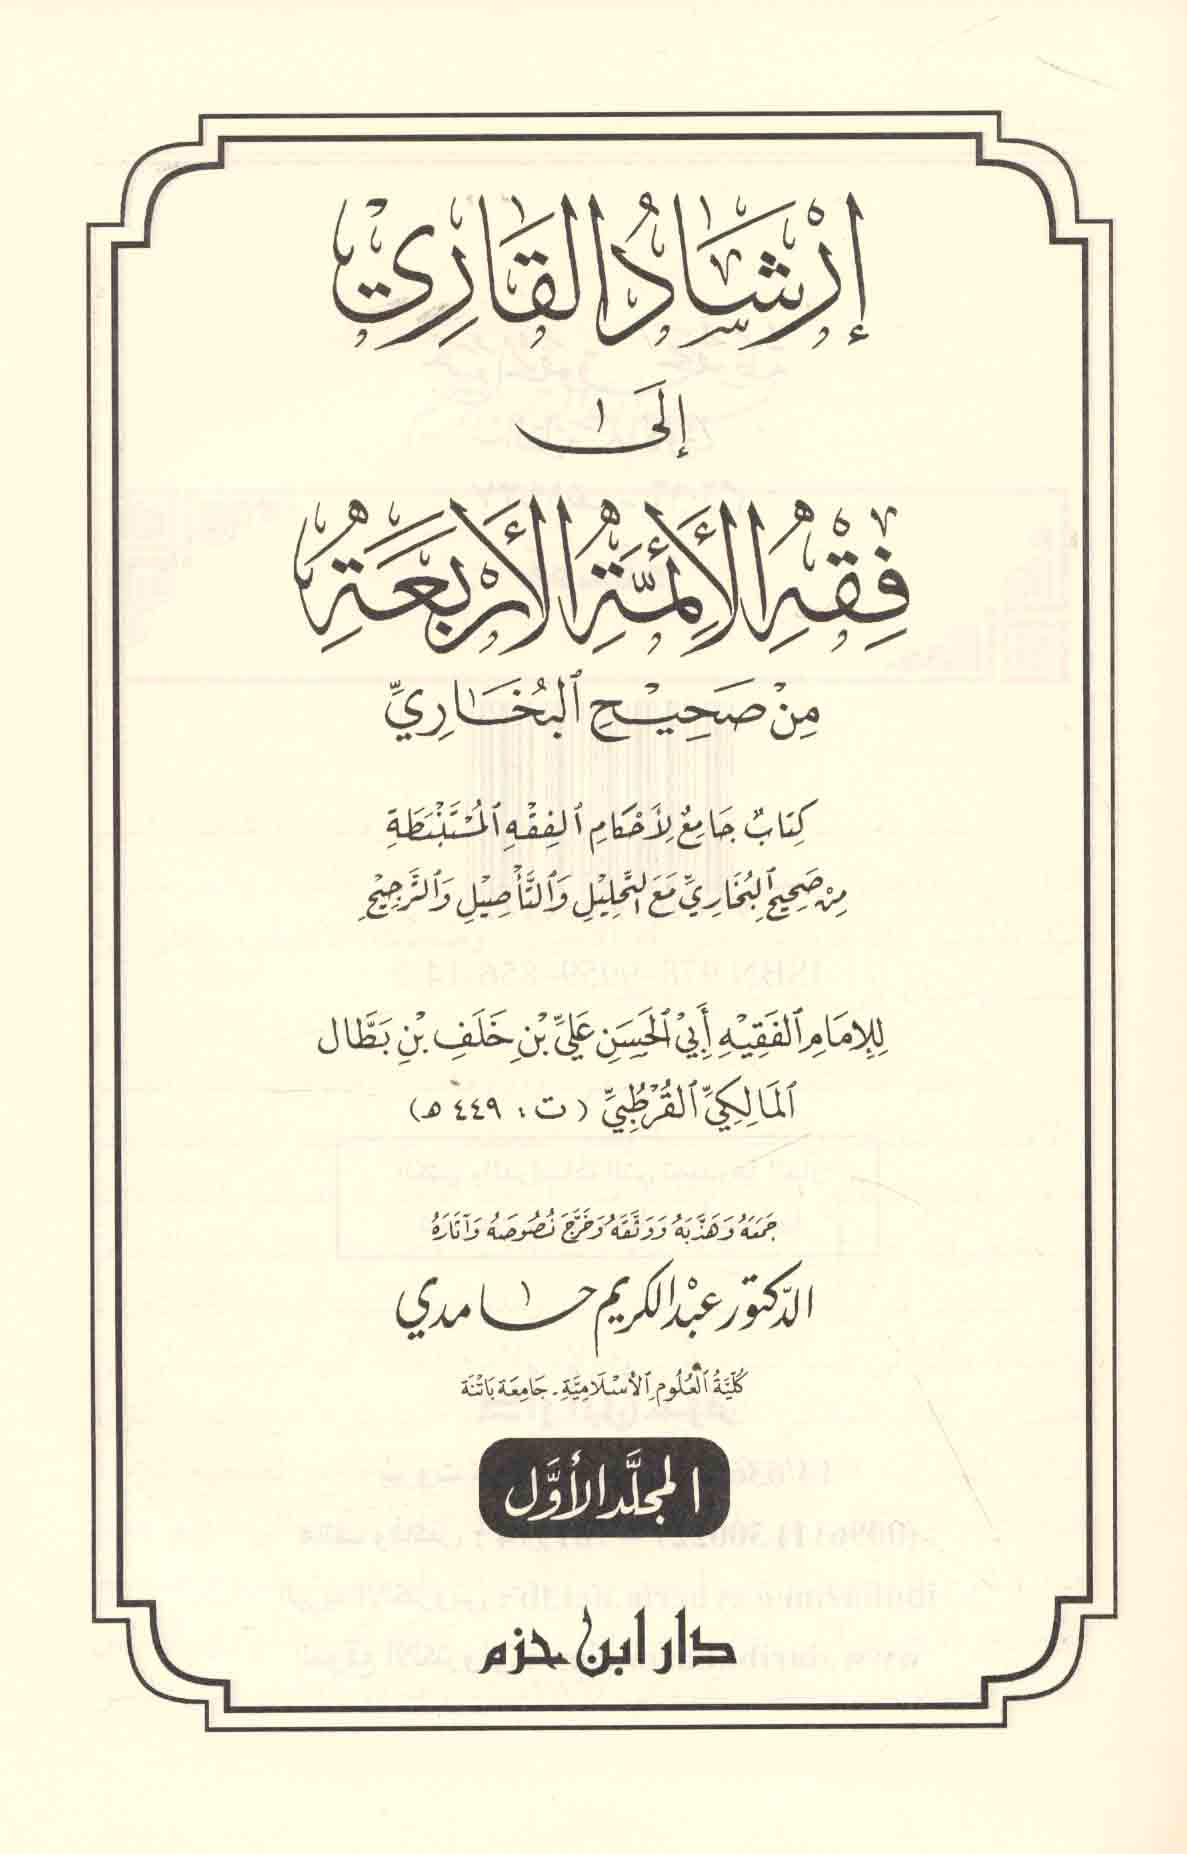 إِرْشَادُ القَارِي
إِلَى
فِقْهِ الأَئِمَّةِ الأَرْبَعَةِ
مِنْ صَحِيْحِ البُخَارِيِّ
كِتَابٌ جَامِعٌ لِأَحْكَامِ الفِقْهِ المُسْتَنْبَطَةِ
مِنْ صَحِيحِ البُخَارِيِّ مَعَ التَّحْلِيْلِ وَالتَّأْصِيْلِ وَالتَّرْجِيْحِ
لِلإِمَامِ الفَقِيْهِ أَبِيْ الحَسَنِ عَلِيِّ بْنِ خَلَفِ بْنِ بَطَّال
المَالِكِيِّ القُرْطُبِيِّ (ت: ٤٤٩ هـ)
جَمَعَهُ وَهَذَّبَهُ وَوَثَّقَهُ وَخَرَّجَ نُصُوصَهُ وَآثَارَهُ
الدّكتور عبْد الكريم حامدي
كُلِّيَّةُ العُلُومِ الإسْلَامِيَّةِ - جَامِعَة بَاتْنَة
المجلّد الأوَّل
دار ابن حزم